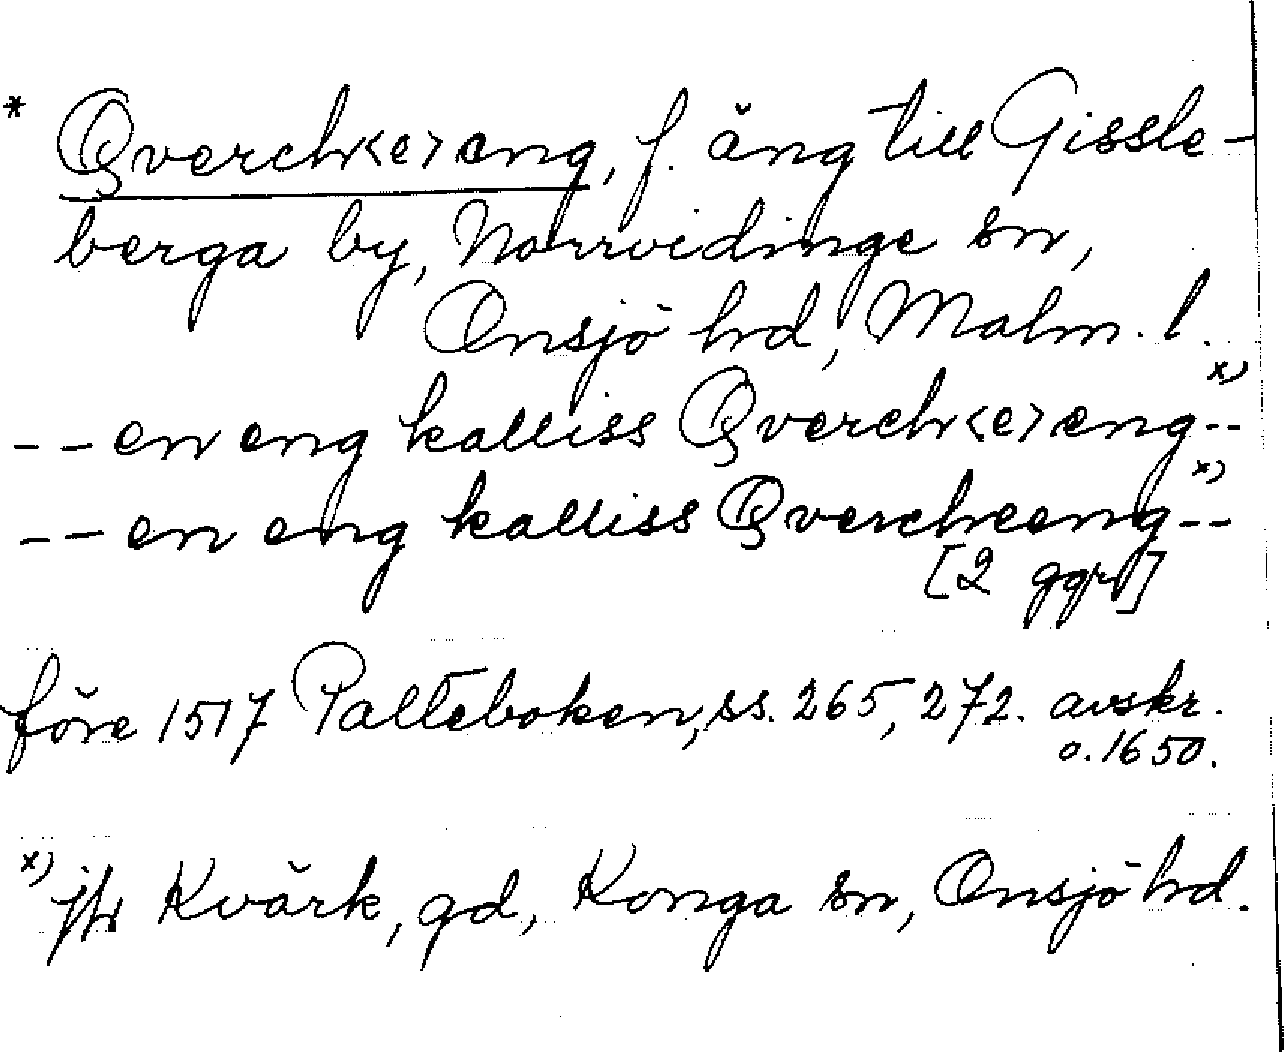 * Qverch<e>eng, f. äng till Gissle-
berga by, Norrvidinge sn,
Onsjö hd, Malm. l.
-- en eng kalliss Qverch<e>eng x) --
-- en eng kalliss Qvercheeng x) --
[2 ggr]
före 1517 Palteboken, ss. 265, 272. avskr.
o. 1650.
x) jfr Kvärk, gd, Konga sn, Onsjö hd.